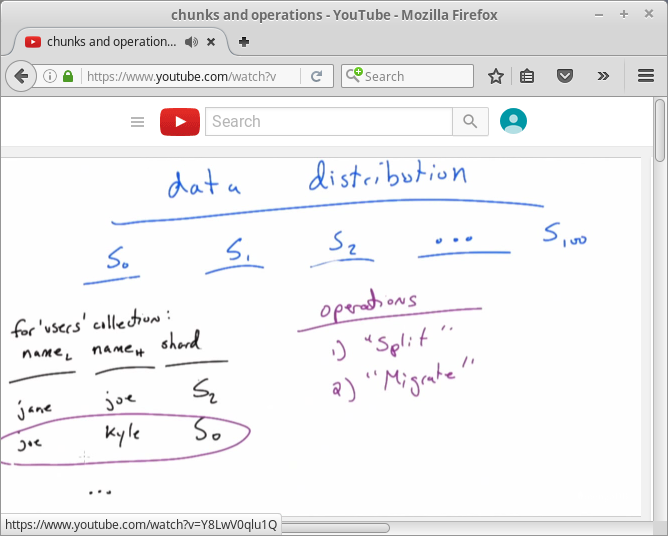 chunks and operations - YouTube - Mozilla Firefox
chunks and operation...
https://www.youtube.com/watch?v
Search
Search
data distribution
S0 S1 S2 ... S100
for 'users' collection:
nameL nameH shard
jane joe S2
joe Kyle S0
...
operations
1) "Split"
2) "Migrate"
https://www.youtube.com/watch?v=Y8LwV0qlu1Q